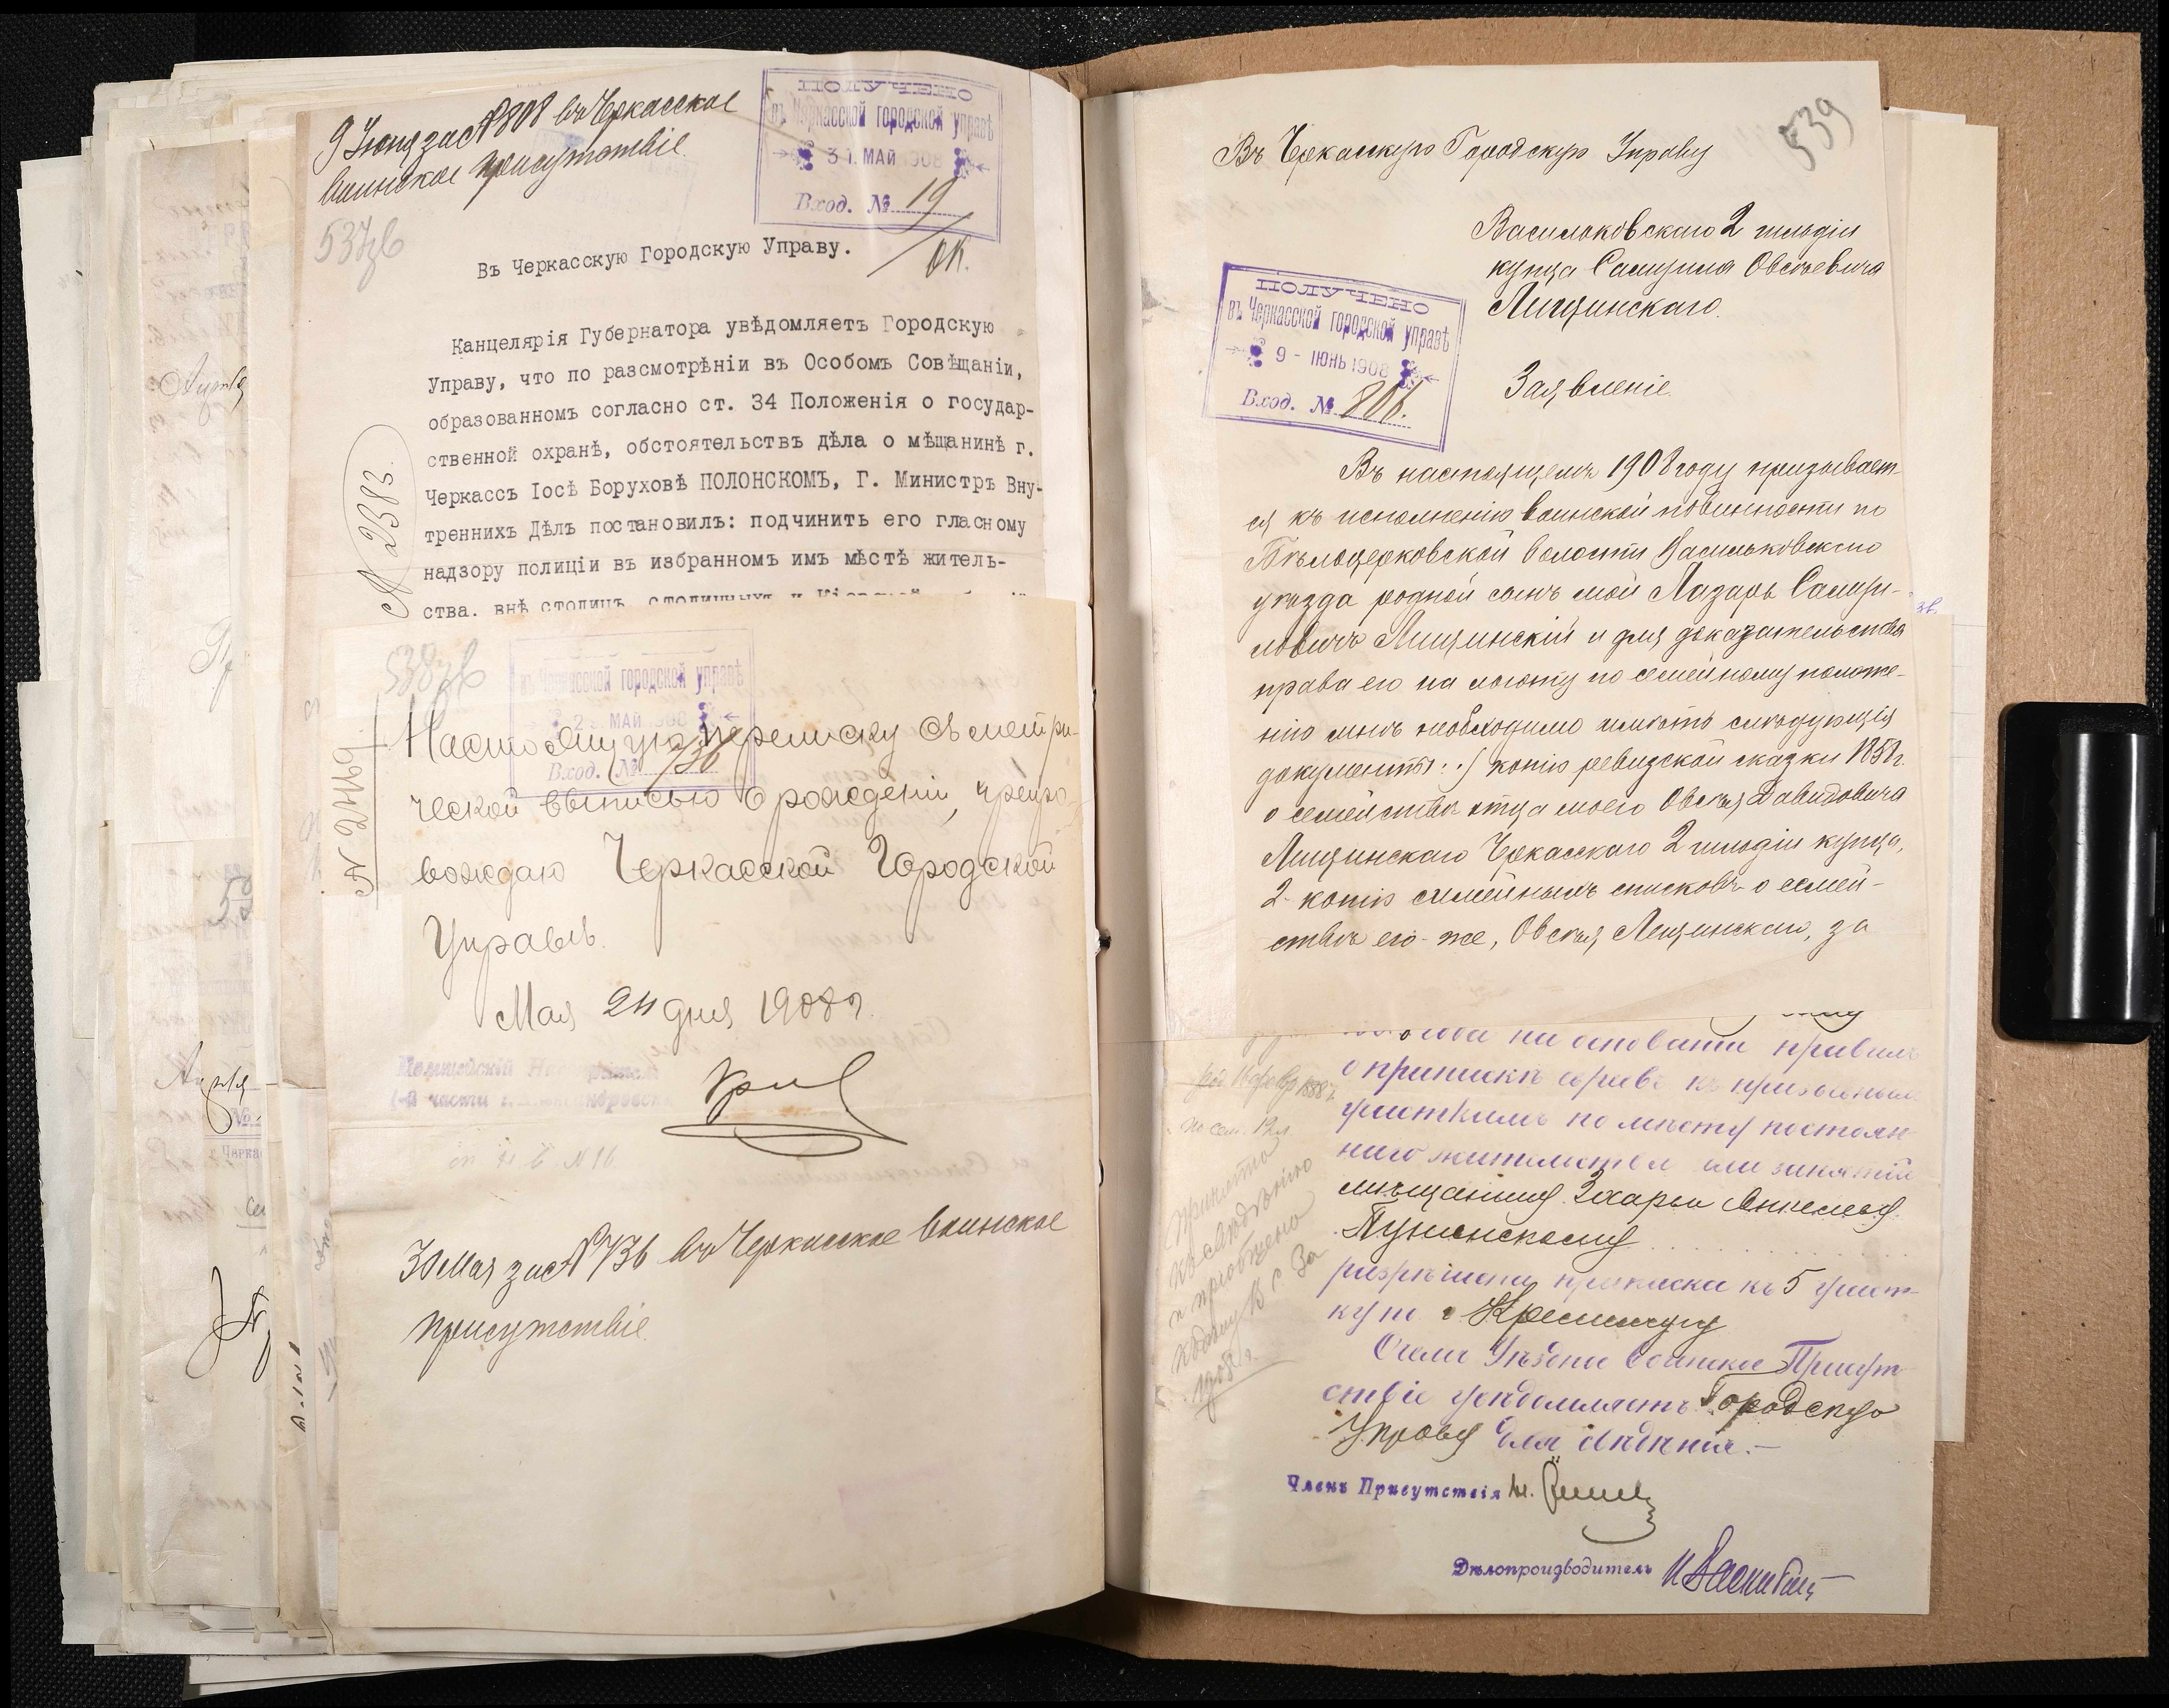 9 Июня за № 808 въ Черкасское
воинское присутствіе.
537зв
ПОЛУЧЕНО
въ Черкасской городской управѣ
31. МАЙ 1908
Вход. № 19
Въ Черкасскую Городскую Управу.
№ 2383.
Канцелярія Губернатора увѣдомляетъ Городскую
Управу, что по разсмотрѣніи въ Особомъ Совѣщаніи,
образованномъ согласно ст. 34 Положенія о государ-
ственной охранѣ, обстоятельствъ дѣла о мѣщанинѣ г.
Черкассъ Іосѣ Боруховѣ ПОЛОНСКОМЪ, Г. Министръ Вну-
треннихъ Дѣлъ постановилъ: подчинить его гласному
надзору полиціи въ избранномъ имъ мѣстѣ житель-
ства. внѣ столицъ,
538зв
въ Черкасской городской управѣ
МАЙ 1908
Вход. № 736
Настоящую переписку съ метри-
ческой выписью о рожденіи, препро-
вождаю Черкасской Городской
Управѣ.
Мая 24 дня 1908 г.
1-й части г.
30 Мая за № 736 въ Черкасское воинское
присутствіе.
539
Въ Черкасскую Городскую Управу
Васильковскаго 2 гильдіи
купца Самуила Овсѣевича
Лищинскаго.
ПОЛУЧЕНО
въ Черкасской городской управѣ
9 - ІЮНЬ 1908
Вход. № 806.
Заявленіе.
Въ настоящемъ 1908 году призывает-
ся къ исполненію воинской повинности по
Бѣлоцерковской волости Васильковскаго
уѣзда родной сынъ мой Лазарь Самуи-
ловичъ Лищинскій и для доказательства
права его на льготу по семейному положе-
нію мнѣ необходимо имѣть слѣдующія
документы: 1) копію ревизской сказки 1858 г.
о семействѣ отца моего Овсѣя Давидовича
Лищинскаго Черкасскаго 2 гильдіи купца,
2- копію семейныхъ списковъ о семей-
ствѣ его-же, Овсѣя Лищинскаго, за
на основаніи правилъ
о припискѣ евреевъ къ призывнымъ
участкамъ по мѣсту постоян-
наго жительства или занятій
мѣщанину
разрѣшена приписка къ 5 участ-
ку г. Кременчугу
О чемъ Уѣздное воинское Присут-
ствіе увѣдомляетъ Городскую
Управу для свѣдѣнія.-
Членъ Присутствія
Дѣлопроизводитель